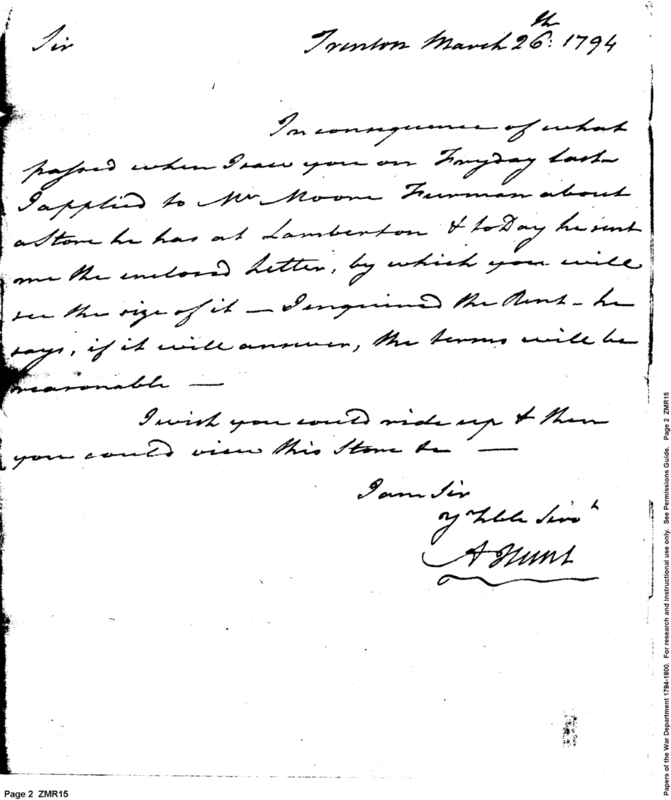 Sir Trenton March 26th: 1794
In consequence of what
passed when I saw you on Fryday last
I applied to Mr Moore Furman about
a Store he has at Lamberton & to Day he sent
me the enclosed Letter, by which you will
see the size of it — I enquired the Rent - he
says, if it will answer, the terms will be
reasonable —
I wish you could ride up & then
you could view this Store &c —
I am Sir
yr Hble Servt
A Hunt
Page 2 ZMR15
Papers of the War Department 1784-1800. For research and instructional use only. See Permissions Guide. Page 2 ZMR15